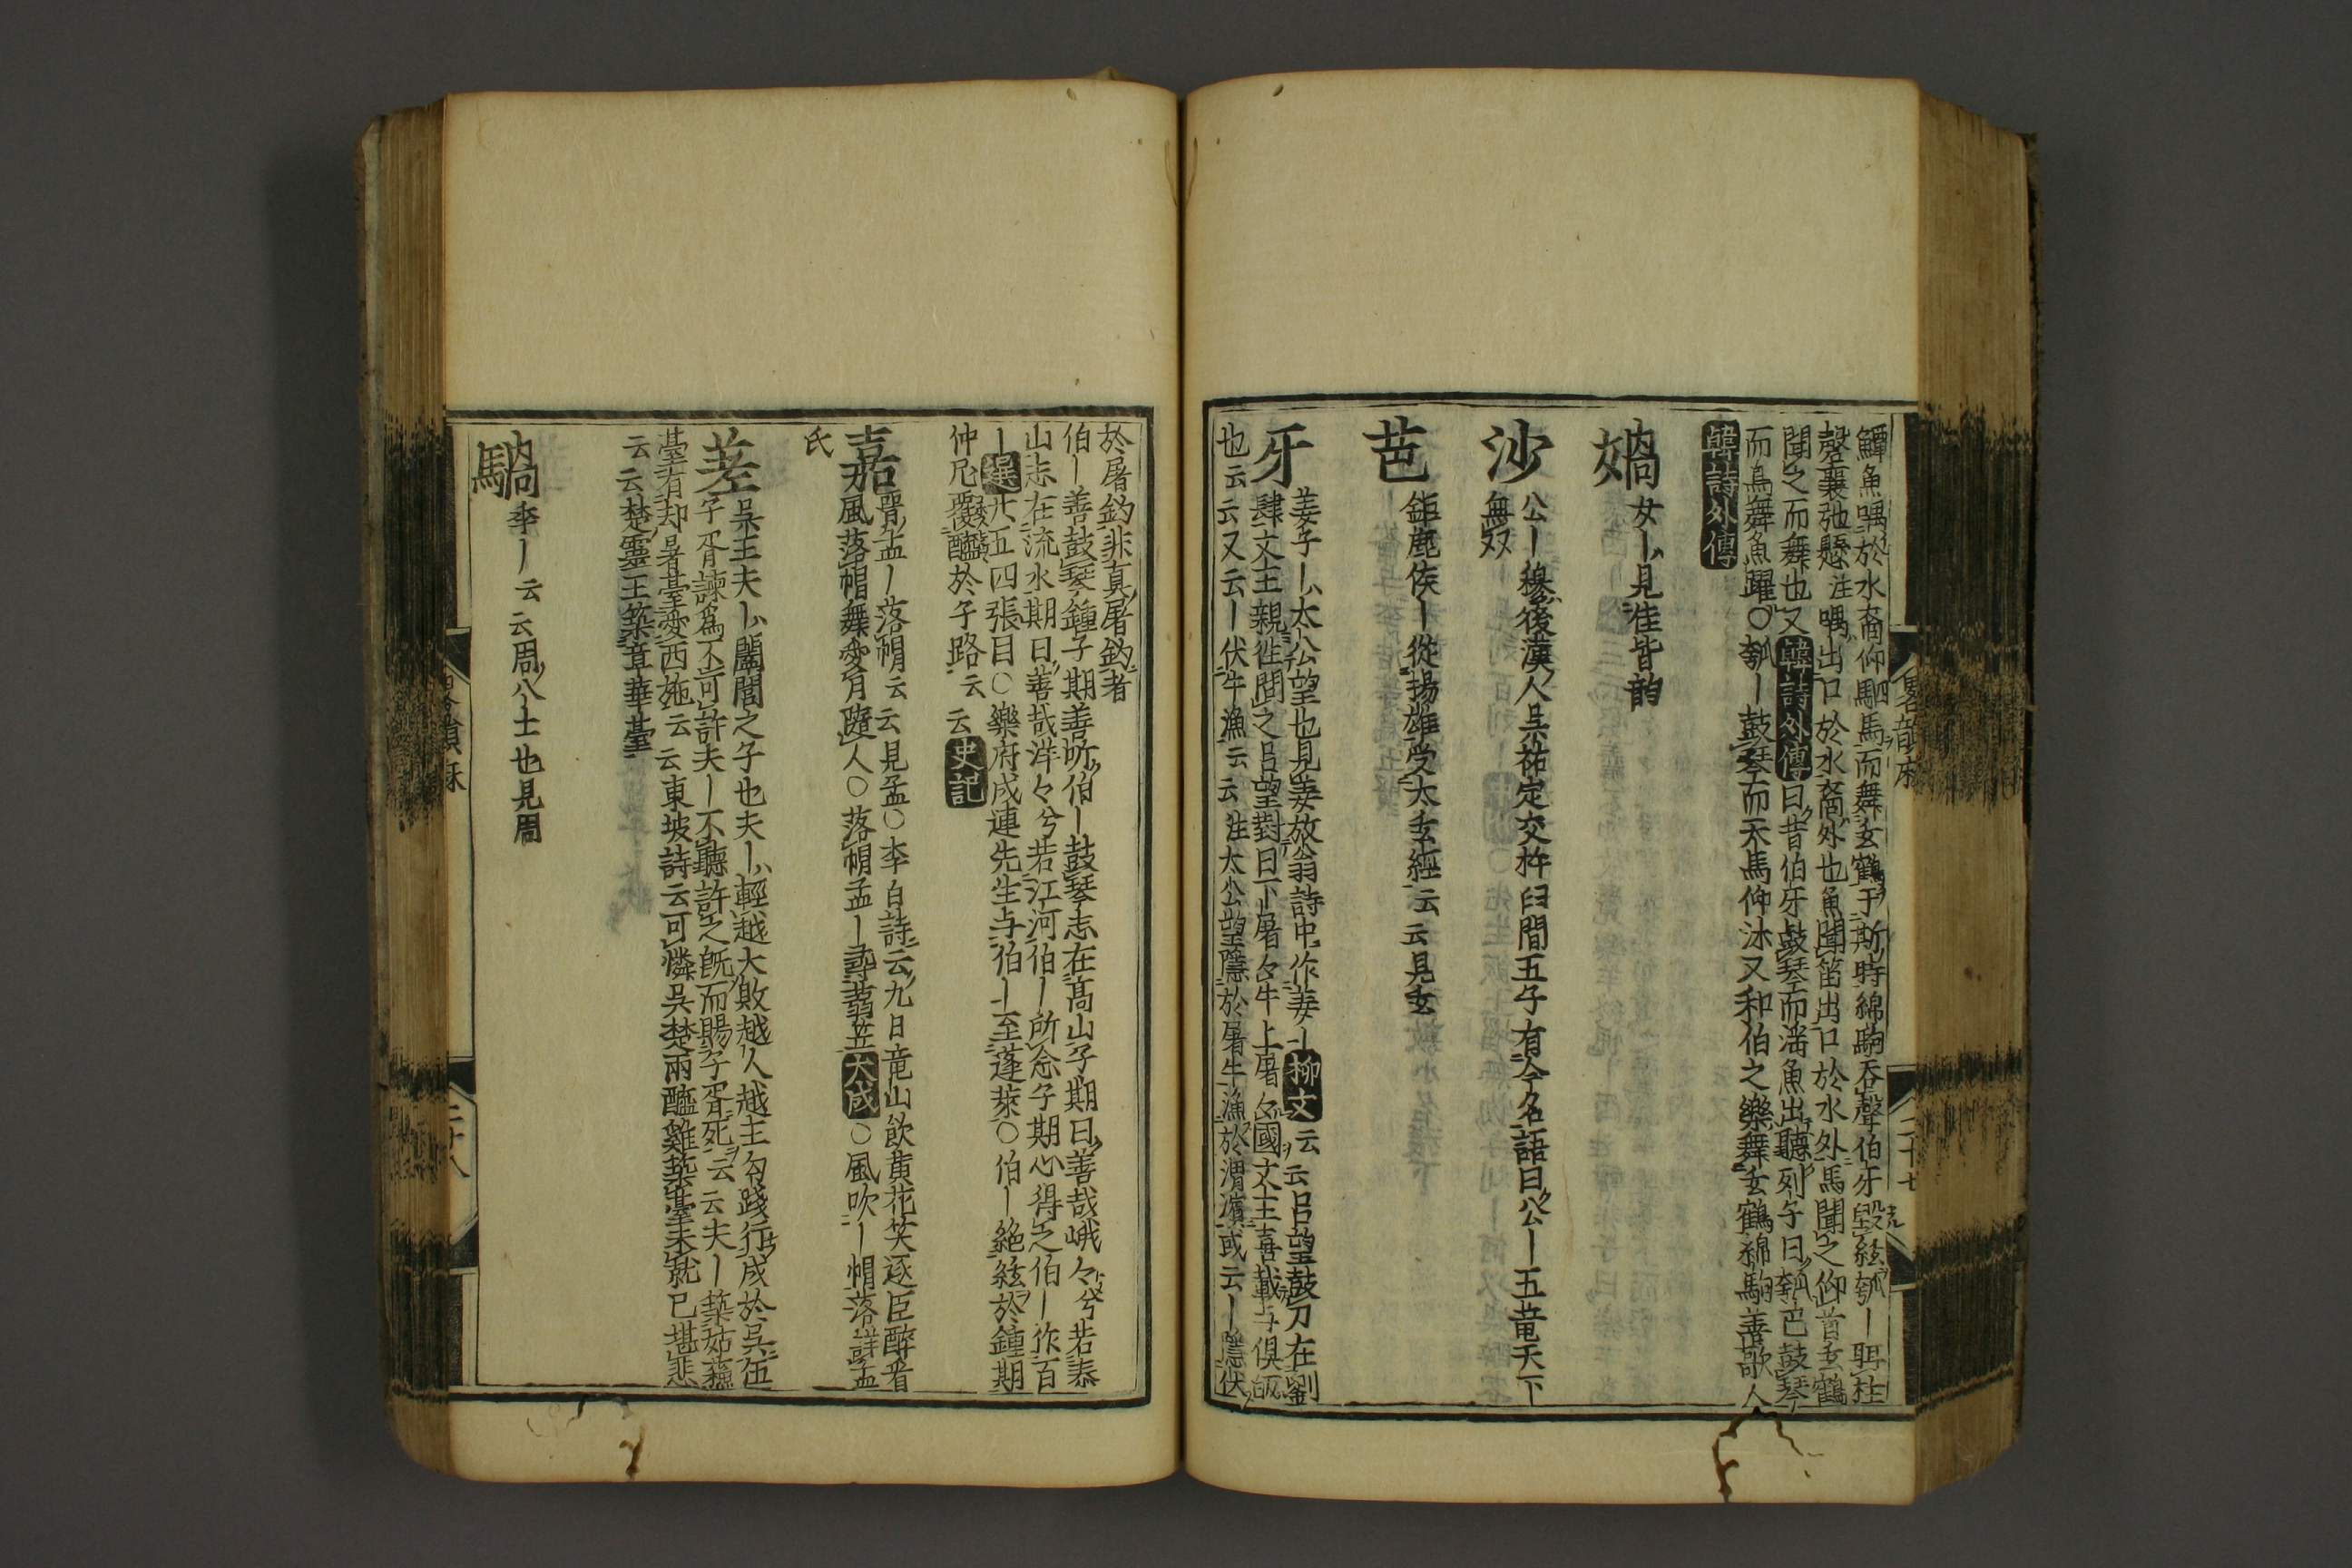 鱏魚喁於水裔仰駟馬而舞玄鶴于斯時綿駒吞聲伯牙毀絃瓠ー聑柱
磬襄弛懸注喁出口於水裔外也魚聞笛出口於水外馬聞之仰首玄鶴
聞之而舞也又韓詩外傳曰昔伯牙鼓琴而淫魚出聽列子曰瓠巴鼓琴
而鳥舞魚躍○瓠ー鼓琴而天馬仰沐又和伯之樂舞玄鶴綿駒善歌人
韓詩外傳
媧
女ー見佳皆韵
沙
公ー穆後漢人吳祐定交杵臼間五子有令名語曰公ー五竜天下
無双
芭
鉅鹿侯ー從揚雄受太玄經云云見玄
牙
姜子ー太公望也見姜放翁詩中作姜ー柳文云云呂望鼓刀在列
肆文王親往問之呂望對曰下屠々牛上屠々國文王喜載与俱皈
也云云又云ー伏牛漁云云注太公望隱於屠牛漁於渭濱或云ー隱伏
於屠釣非真屠釣者
伯ー善鼓琴鍾子期善听伯ー鼓琴志在高山子期曰善哉峨々兮若泰
山志在流水期曰善哉洋々兮若江河伯ー所念子期心得之伯ー作百
ー選廾五四張目○樂府成連先生与伯ー至蓬萊○伯ー絶絃於鍾期
仲尼覆醢於子路云云史記
嘉
晋孟ー落帽云云見孟○李白詩云九日竜山飲黄花笑逐臣醉看
風落帽舞愛月隨人○落帽孟ー尋蒻笠大成○風吹ー帽落詳孟
氏
差
吳王夫ー闔閭之子也夫ー輕越大敗越人越王勾踐行成於吳伍
子胥諫為不可許夫ー不聽許之既而賜子胥死云云夫ー築姑蘇
臺有却暑臺愛西施云云東坡詩云可憐吳楚兩醯雞築臺未就已堪悲
云云楚靈王築章華臺
騧
季ー云云周八士也見周